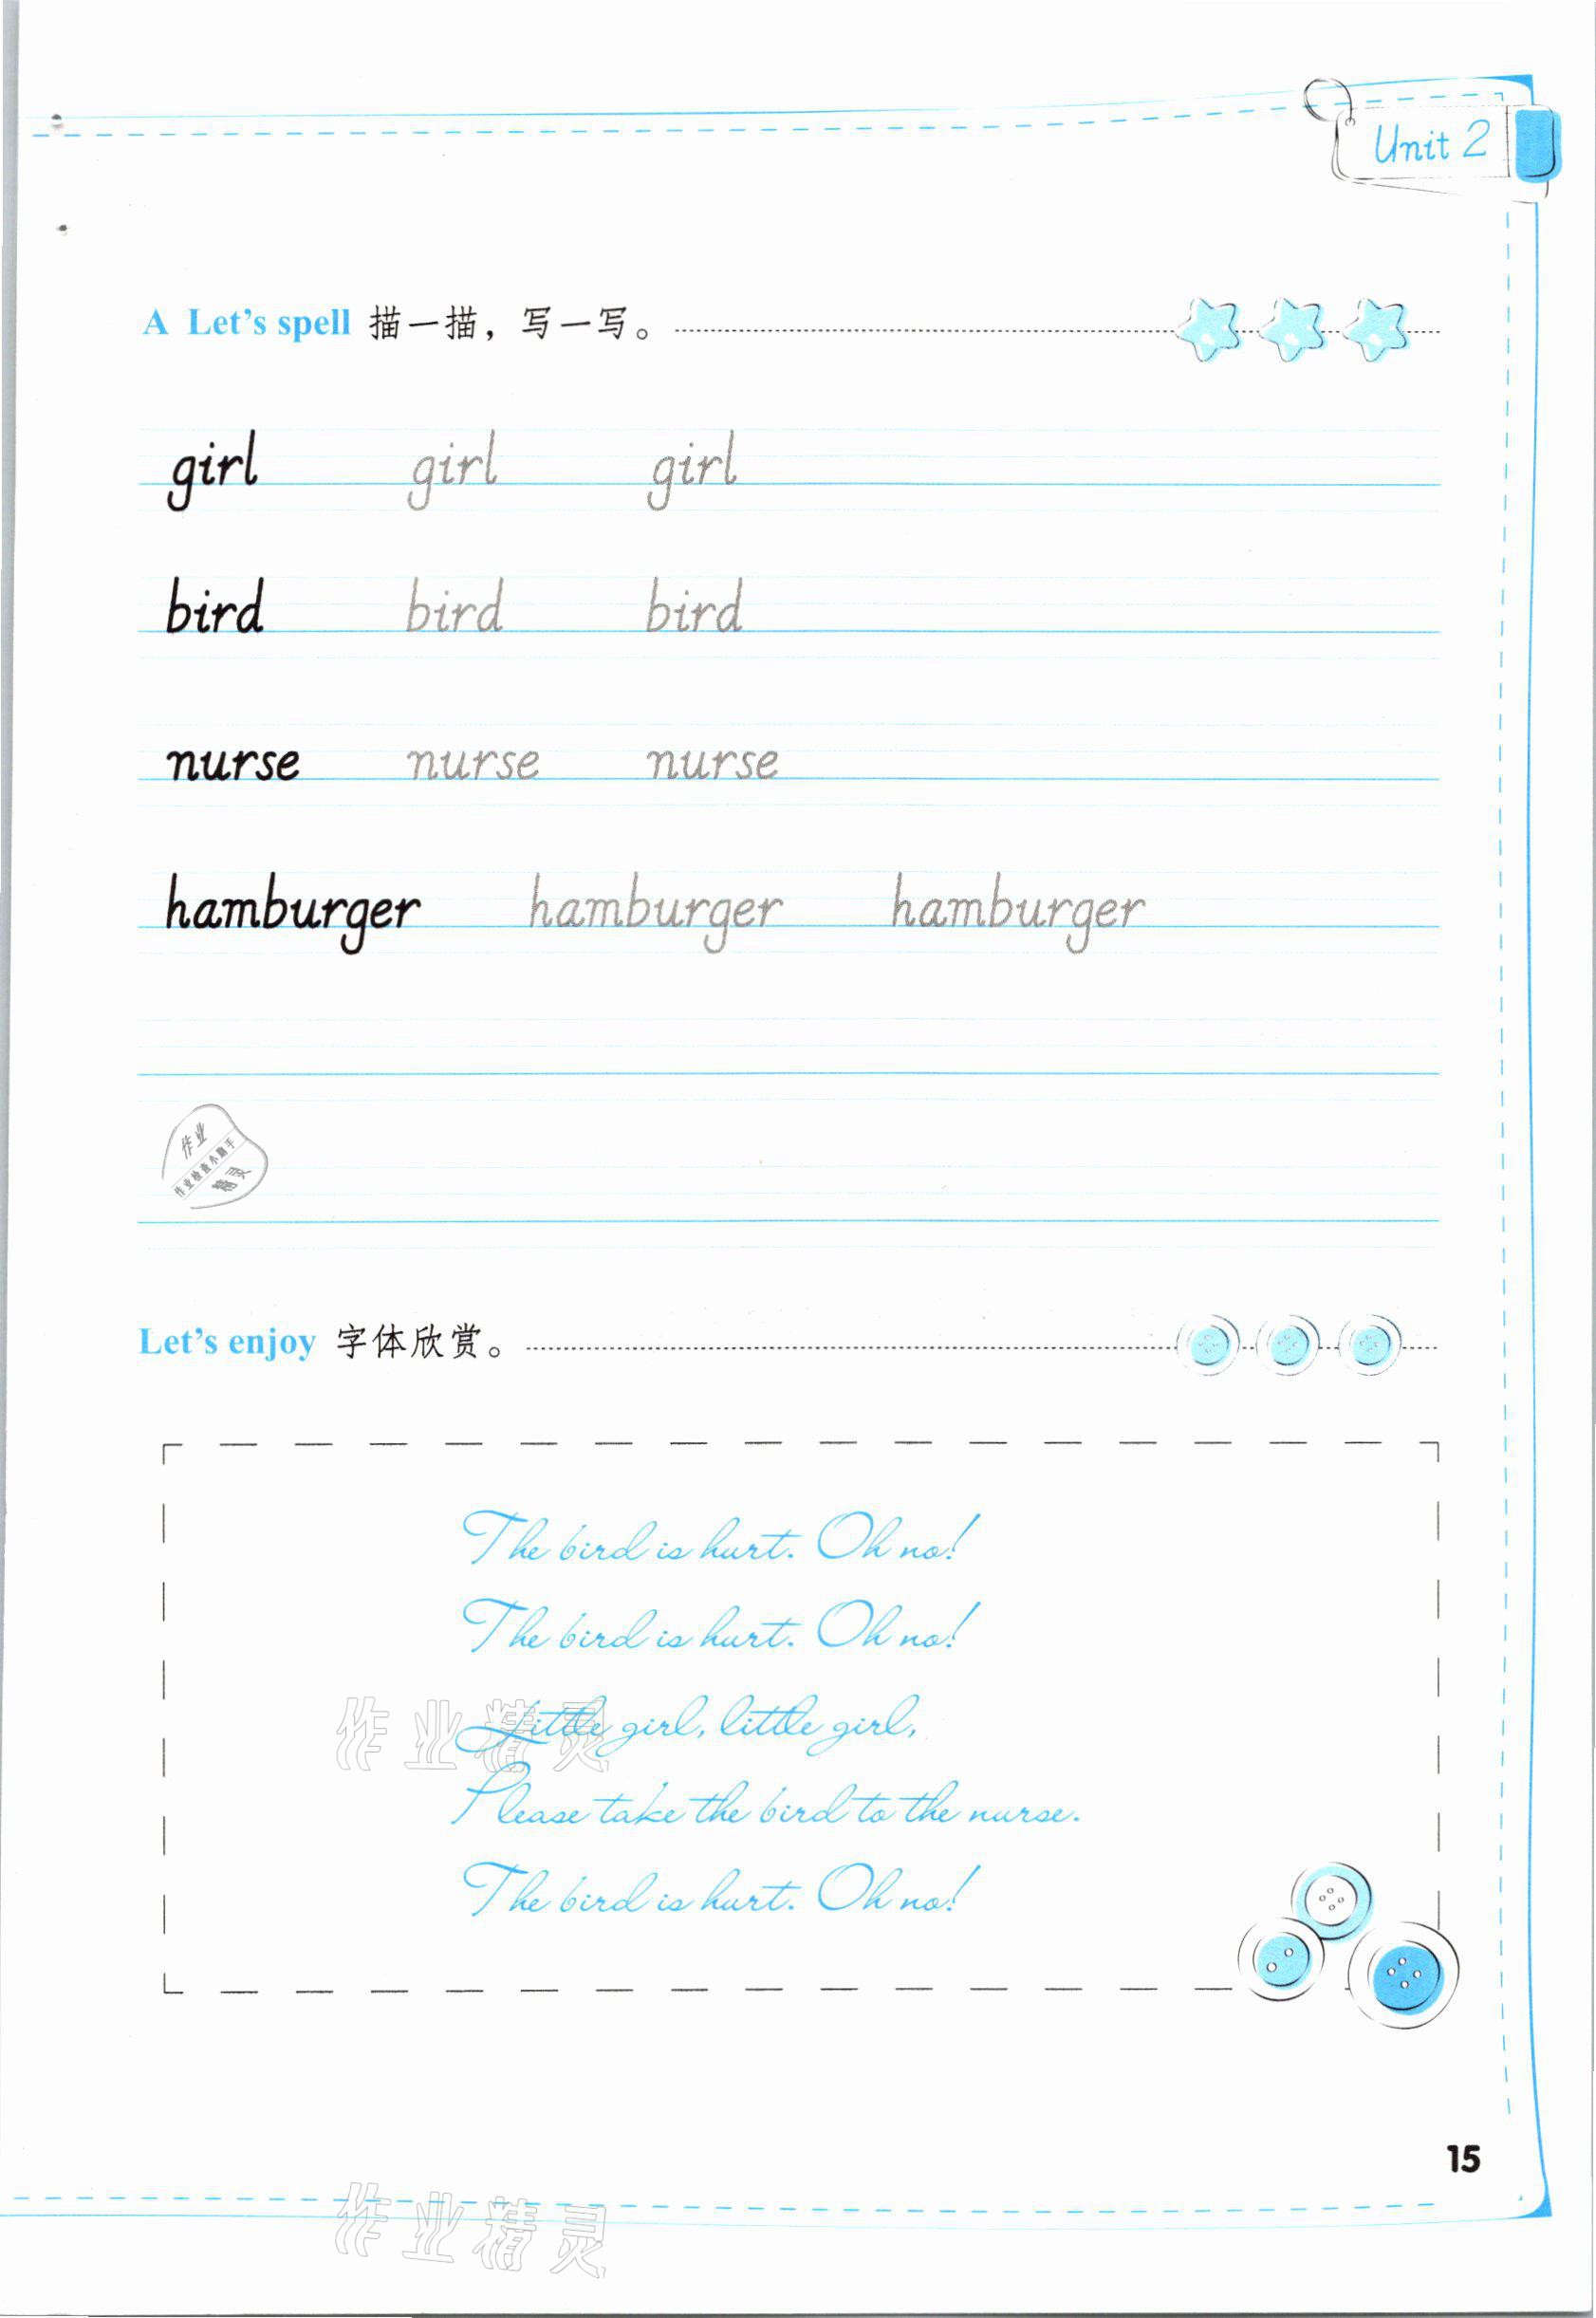 Unit 2
A Let's spell 描一描，写一写。
girl girl girl
bird bird bird
nurse nurse nurse
hamburger hamburger hamburger
作业
作业检查小助手
精灵
Let's enjoy 字体欣赏。
The bird is hurt. Oh no!
The bird is hurt. Oh no!
Little girl, little girl,
作业精灵
Please take the bird to the nurse.
The bird is hurt. Oh no!
15
作业精灵